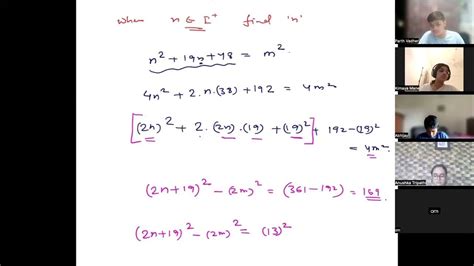 when n ∈ I⁺ find 'n'
n² + 19n + 48 = m²
4n² + 2.n.(38) + 192 = 4m²
[(2n)² + 2.(2n).(19) + (19)²] + 192 - (19)²
= 4m²
(2n+19)² - (2m)² = (361-192) = 169
(2n+19)² - (2m)² = (13)²
Parth Vazhen
Kimaya Mane
Abhijee
Anushka Tripathi
om